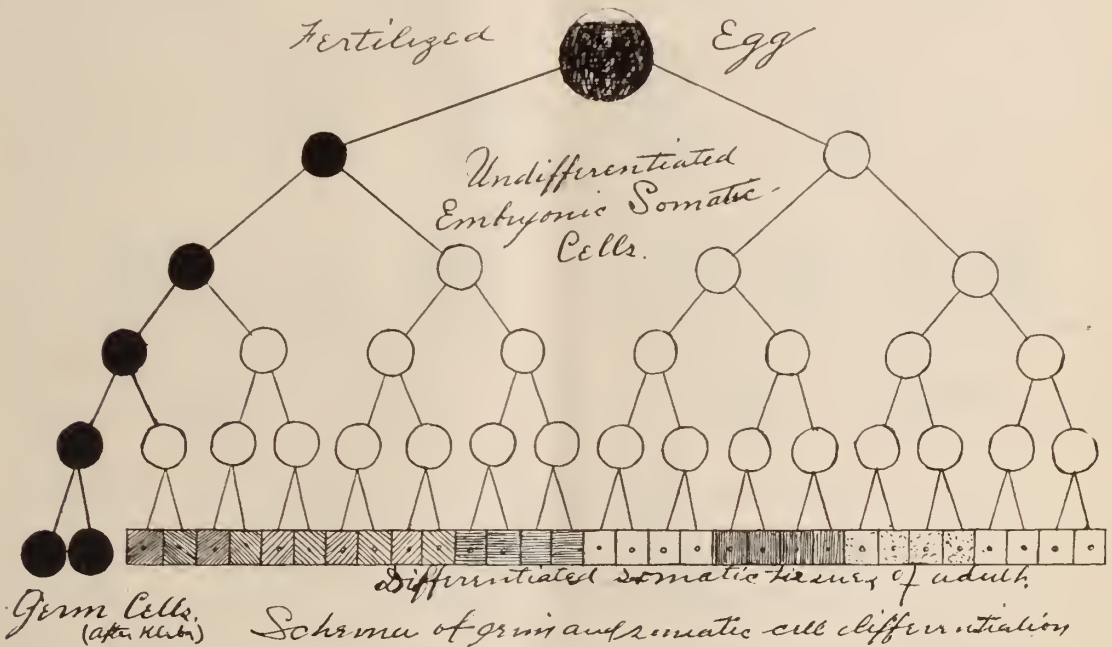 Fertilized Egg
Undifferentiated
Embryonic Somatic
Cells.
Differentiated somatic tissues of adult.
Germ Cells.
(after
Schema of germ and somatic cell differentiation